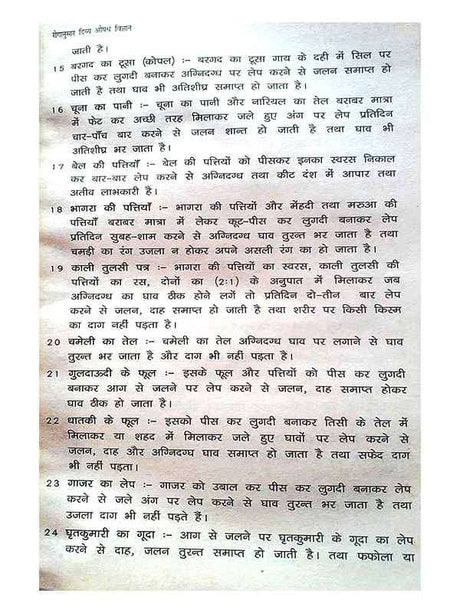 रोगानुसार दिव्य औषध विज्ञान
जाती है।
15 बरगद का टूसा (कोपल) :- बरगद का टूसा गाय के दही में सिल पर
पीस कर लुगदी बनाकर अग्निदग्ध पर लेप करने से जलन समाप्त हो
जाती है तथा घाव भी अतिशीघ्र समाप्त हो जाता है।
16 चूना का पानी :- चूना का पानी और नारियल का तेल बराबर मात्रा
में फेट कर अच्छी तरह मिलाकर जले हुए अंग पर लेप प्रतिदिन
चार-पाँच बार करने से जलन शान्त हो जाती है तथा घाव भी
अतिशीघ्र भर जाता है।
17 बेल की पत्तियाँ :- बेल की पत्तियों को पीसकर इनका स्वरस निकाल
कर बार-बार लेप करने से अग्निदग्ध तथा कीट दंश में आपार तथा
अतीव लाभकारी है।
18 भागरा की पत्तियाँ :- भागरा की पत्तियों और मेंहदी तथा मरुआ की
पत्तियाँ बराबर मात्रा में लेकर कूट-पीस कर लुगदी बनाकर लेप
प्रतिदिन सुबह-शाम करने से अग्निदग्ध घाव तुरन्त भर जाता है तथा
चमड़ी का रंग उजला न होकर अपने असली रंग का हो जाता है।
19 काली तुलसी पत्र :- भागरा की पत्तियों का स्वरस, काली तुलसी की
पत्तियों का रस, दोनों का (2:1) के अनुपात में मिलाकर जब
अग्निदग्ध का घाव ठीक होने लगें तो प्रतिदिन दो-तीन बार लेप
करने से जलन, दाह समाप्त हो जाती है तथा शरीर पर किसी किस्म
का दाग नहीं पड़ता है।
20 चमेली का तेल :- चमेली का तेल अग्निदग्ध घाव पर लगाने से घाव
तुरन्त भर जाता है और दाग भी नहीं पड़ता है।
21 गुलदाऊदी के फूल :- इसके फूल और पत्तियों को पीस कर लुगदी
बनाकर आग से जलने पर लेप करने से जलन, दाह समाप्त होकर
घाव ठीक हो जाता है।
22 धातकी के फूल :- इसको पीस कर लुगदी बनाकर तिसी के तेल में
मिलाकर या शहद में मिलाकर जले हुए घावों पर लेप करने से
जलन, दाह और अग्निदग्ध घाव समाप्त हो जाता है तथा सफेद दाग
भी नहीं पड़ता।
23 गाजर का लेप :- गाजर को उबाल कर पीस कर लुगदी बनाकर लेप
करने से जले अंग पर लेप करने से घाव तुरन्त भर जाता है तथा
उजला दाग भी नहीं पड़ते हैं।
24 घृतकुमारी का गूदा :- आग से जलने पर घृतकुमारी के गूदा का लेप
करने से दाह, जलन तुरन्त समाप्त हो जाती है। तथा फफोला या